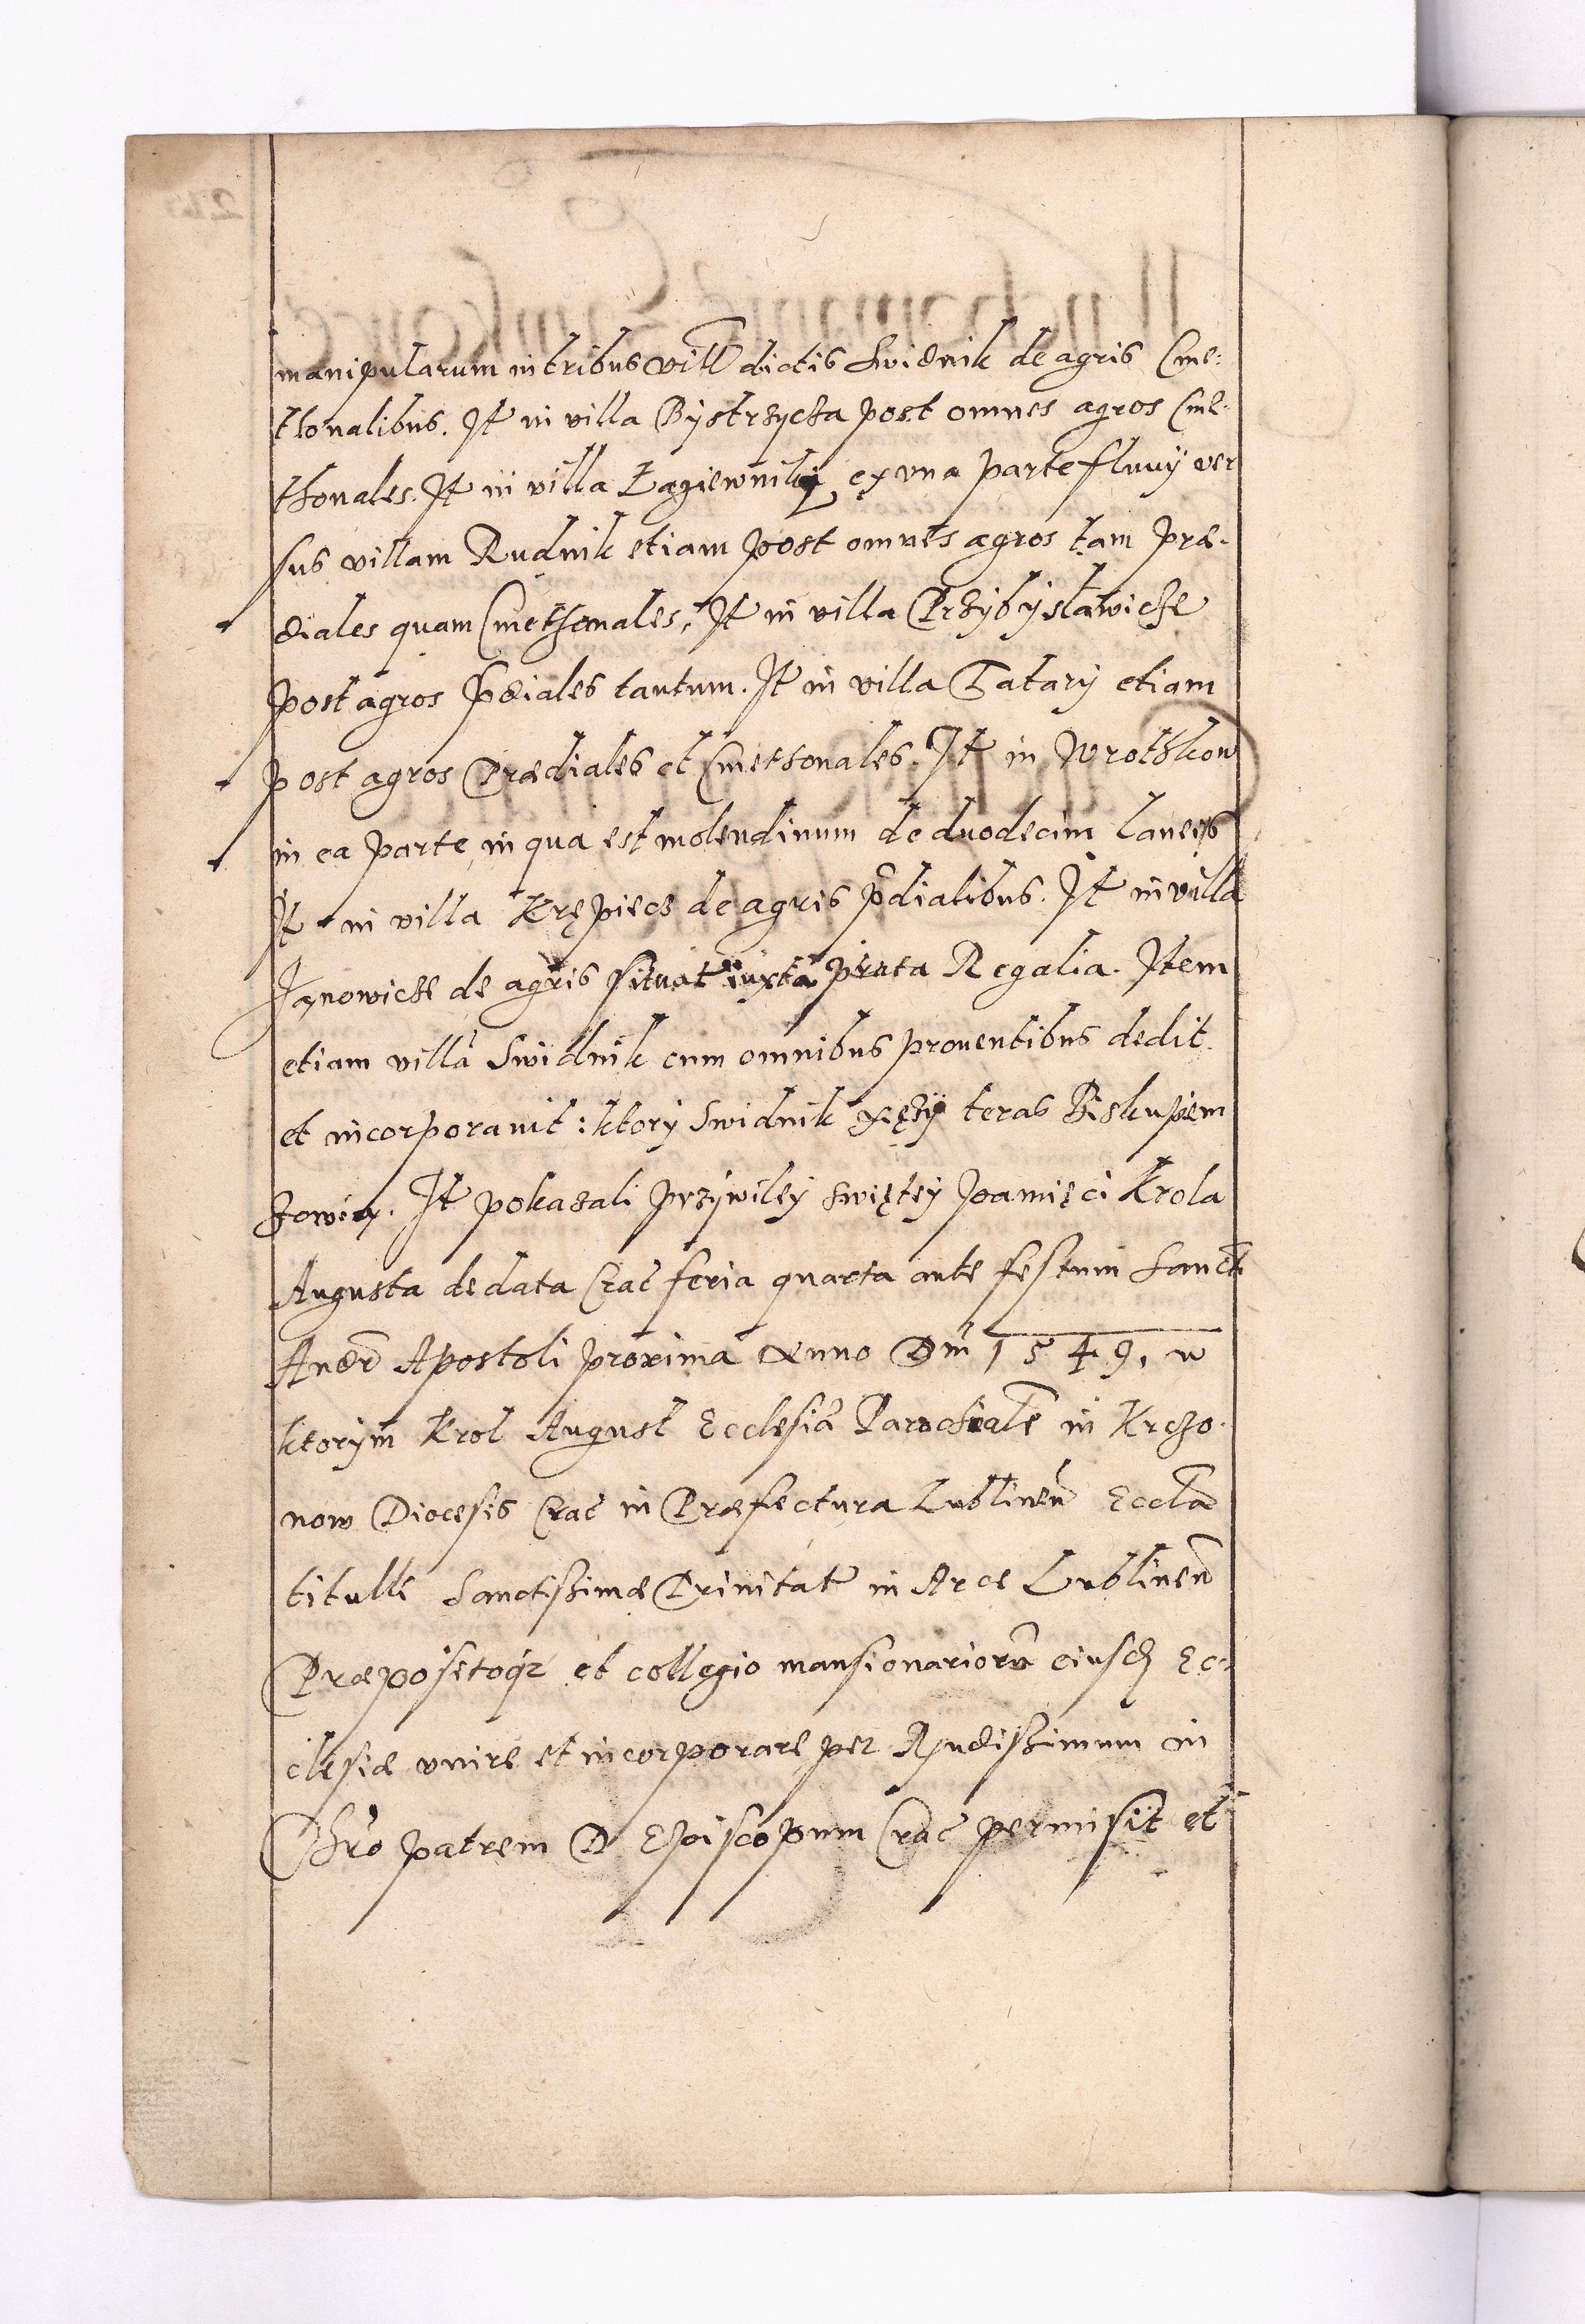 manipularum in tribus vill dictis Swidnik de agris Cme:
thonalibus. It in villa Bystrzycza post omnes agros Cme-
thonales. It in villa Łagiewniki ex vna parte fluuy ver
sus villam Rudnik etiam post omnes agros tam præ-
diales quam Cmethonales, It in villa Przybysławicze
post agros pdiales tantum. It in villa Tatary etiam
post agros Prædiales et Cmethonales. It in Wrothkow
in ea parte in qua est molendinum de duodecim laneis
It in villa Krępiecz de agris pdialibus. It in villa
Janowicze de agris situat iuxta prata Regalia. Item
etiam villa Swidnik cum omnibus prouentibus dedit
et incorporauit: ktory Swidnik xięży teras Biskupiem
zowią. It pokazali przywiley swiętey pamięci Krola
Augusta de data Crac feria quarta ante festum Sancti
Andr Apostoli proxima Anno Dni 1549, w
ktorym Krol August Ecclesia Parochiale in Krczo-
now Diocesis Crac in Præfectura Lublinen Eccla
titulli Sanctissimæ Trinitat in Arce Lublinen
Præpositoq et collegio mansionarioru eiusd Ec-
clesiæ vnire et incorporare per Rndissimum in
Chro patrem D Episcopum Crac permisit et